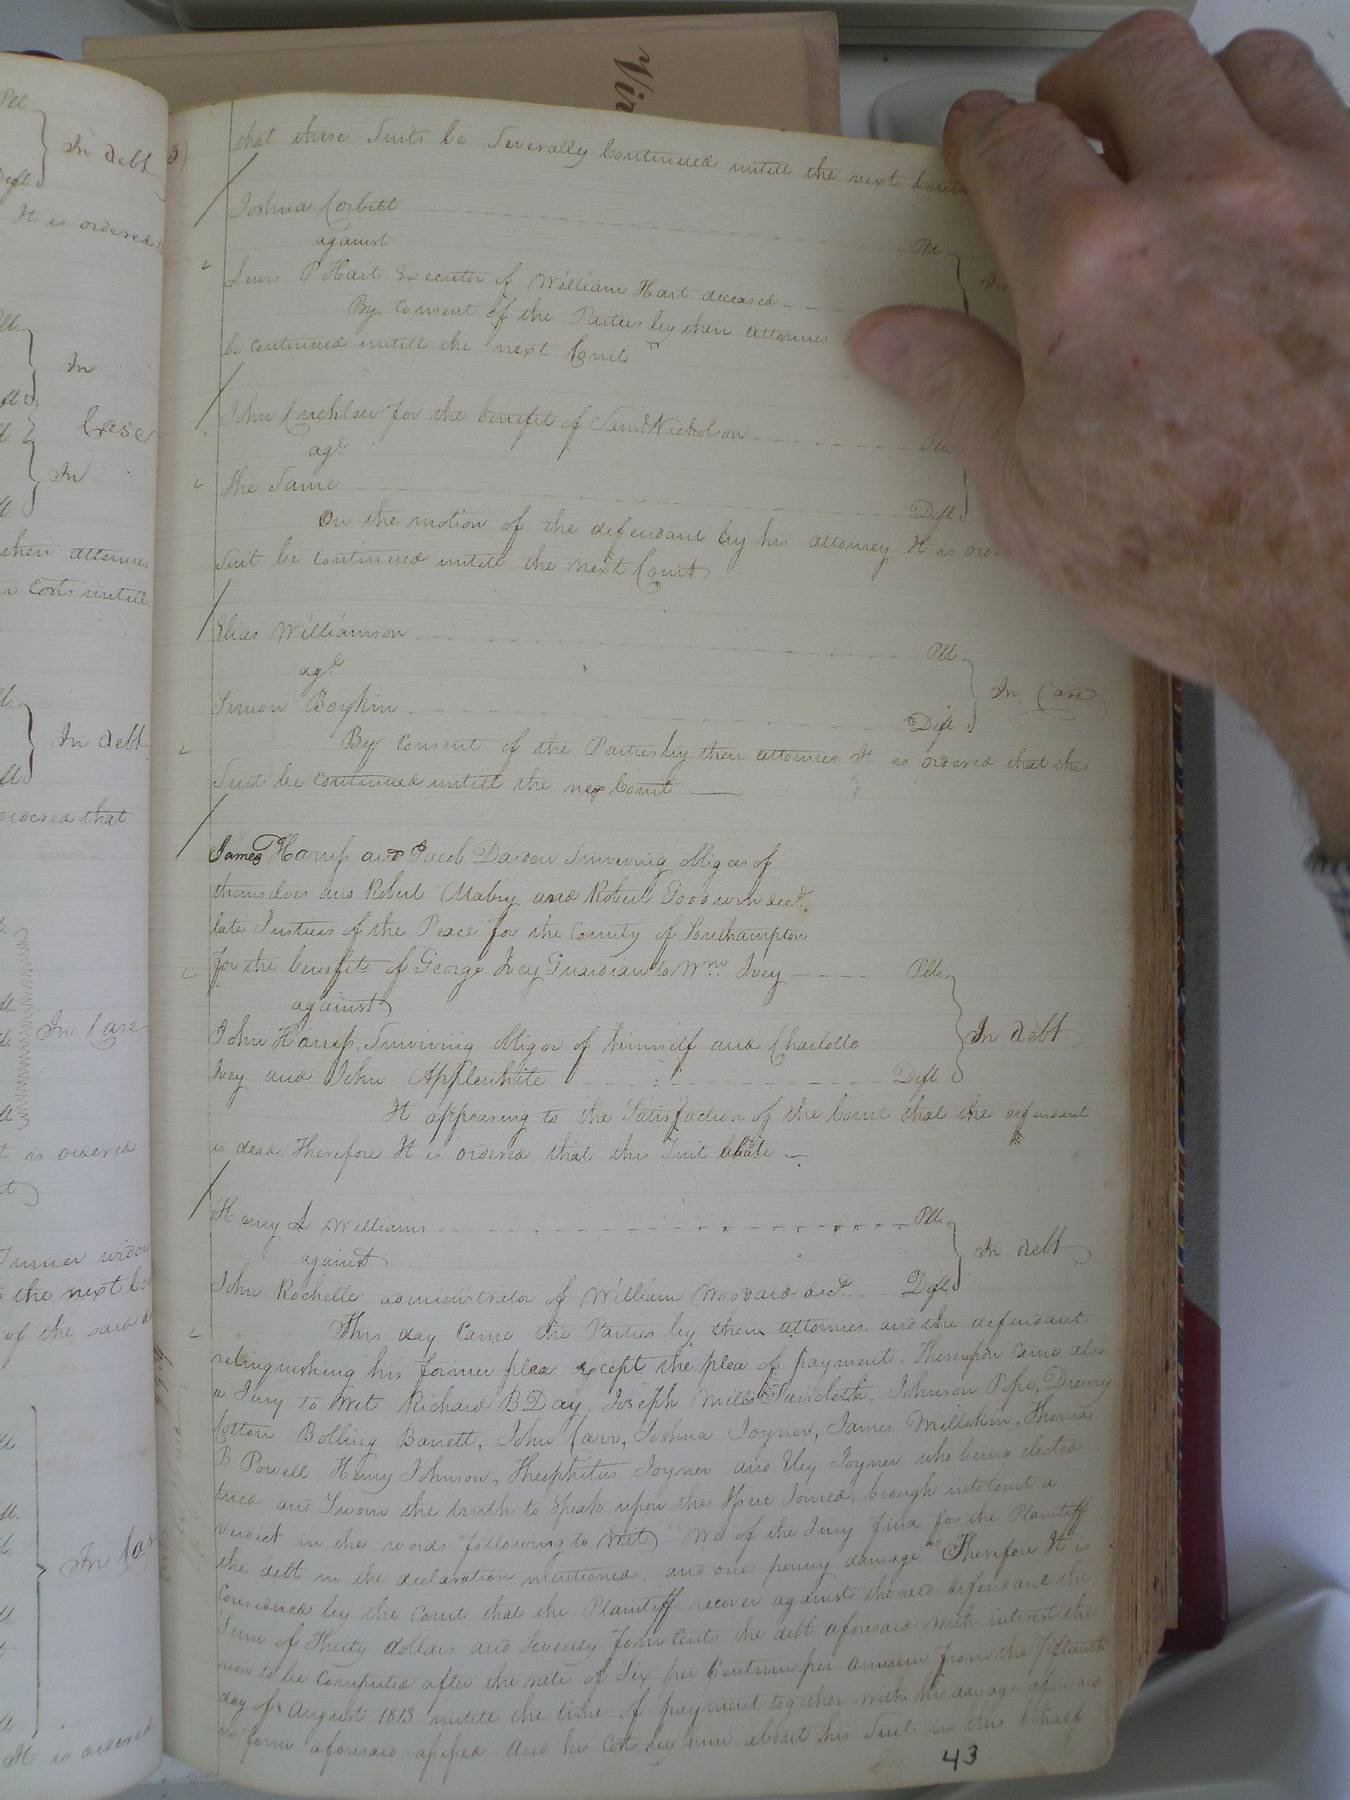 that these Suits be Severally Continued untill the next Court
Joshua Corbitt Plt
against
P Hart Executor of William Hart deceased
By Consent of the Parties by their attornies
be continued untill the next Court
John for the benefit of Saml. Nicholson Plt
agt
the Same Deft
On the motion of the defendant by his attorney It is
Suit be Continued untill the next Court
Elias Williamson Plt
agt
In Case
Simon Boykin Deft
By Consent of the Parties by their attornies It is ordered that this
Suit be continued untill the nex Court
James Harriss and Jacob Darden Surviving obligees of
themselves and Robert Mabry and Robert Goodwin decd.
late Justices of the Peace for the County of Southampton
for the benefit of George Ivey Guardian to Wm Ivey Plt
against
In debt
John Harriss, Surviving obligor of himself and Charlotte
Ivey and John Applewhite Deft
It appearing to the Satisfaction of the Court that the defendant
is dead. Therefore It is ordered that this Suit abate
Henry Williams Plt
In debt
against
John Rochelle administrator of William Woodard decd. Deft
This day Came the Parties by their attornies and the defendant
relinquishing his former plea except the plea of payment. Thereupon Came also
a Jury to Wit Richard B Day, Joseph Mills Faircloth, Johnson Pope, Drewry
Cotton Bolling Barrett, John Carr, Joshua Joyner, James Millikin, Thomas
B Powell Henry Johnson, Theophilus Joyner and Eley Joyner who being elected
tried and Sworn the truth to Speak upon the Issue Joined, brough into Court a
verdict in the words following to Wit) "We of the Jury find for the Plaintiff
the debt in the declaration mentioned, and one penny damage" Therefore It is
Considered by the Court that the Plaintiff recover against the said defendant the
Sum of Thirty dollars and Seventy four Cents the debt aforesaid with interest the
reon to be Computed after the rate of Six per Centum per annum from the fifteenth
day of August 1813 untill the time of payment together with the damage aforesaid
in form aforesaid assessed and his Costs by him about his Suit in this behalf
43
Vir
In debt
It is ordered
In
Case
In
their attornies
Costs untill
In debt
ordered that
In Case
is ordered
Turner widow
the next
of the said
It is ordered